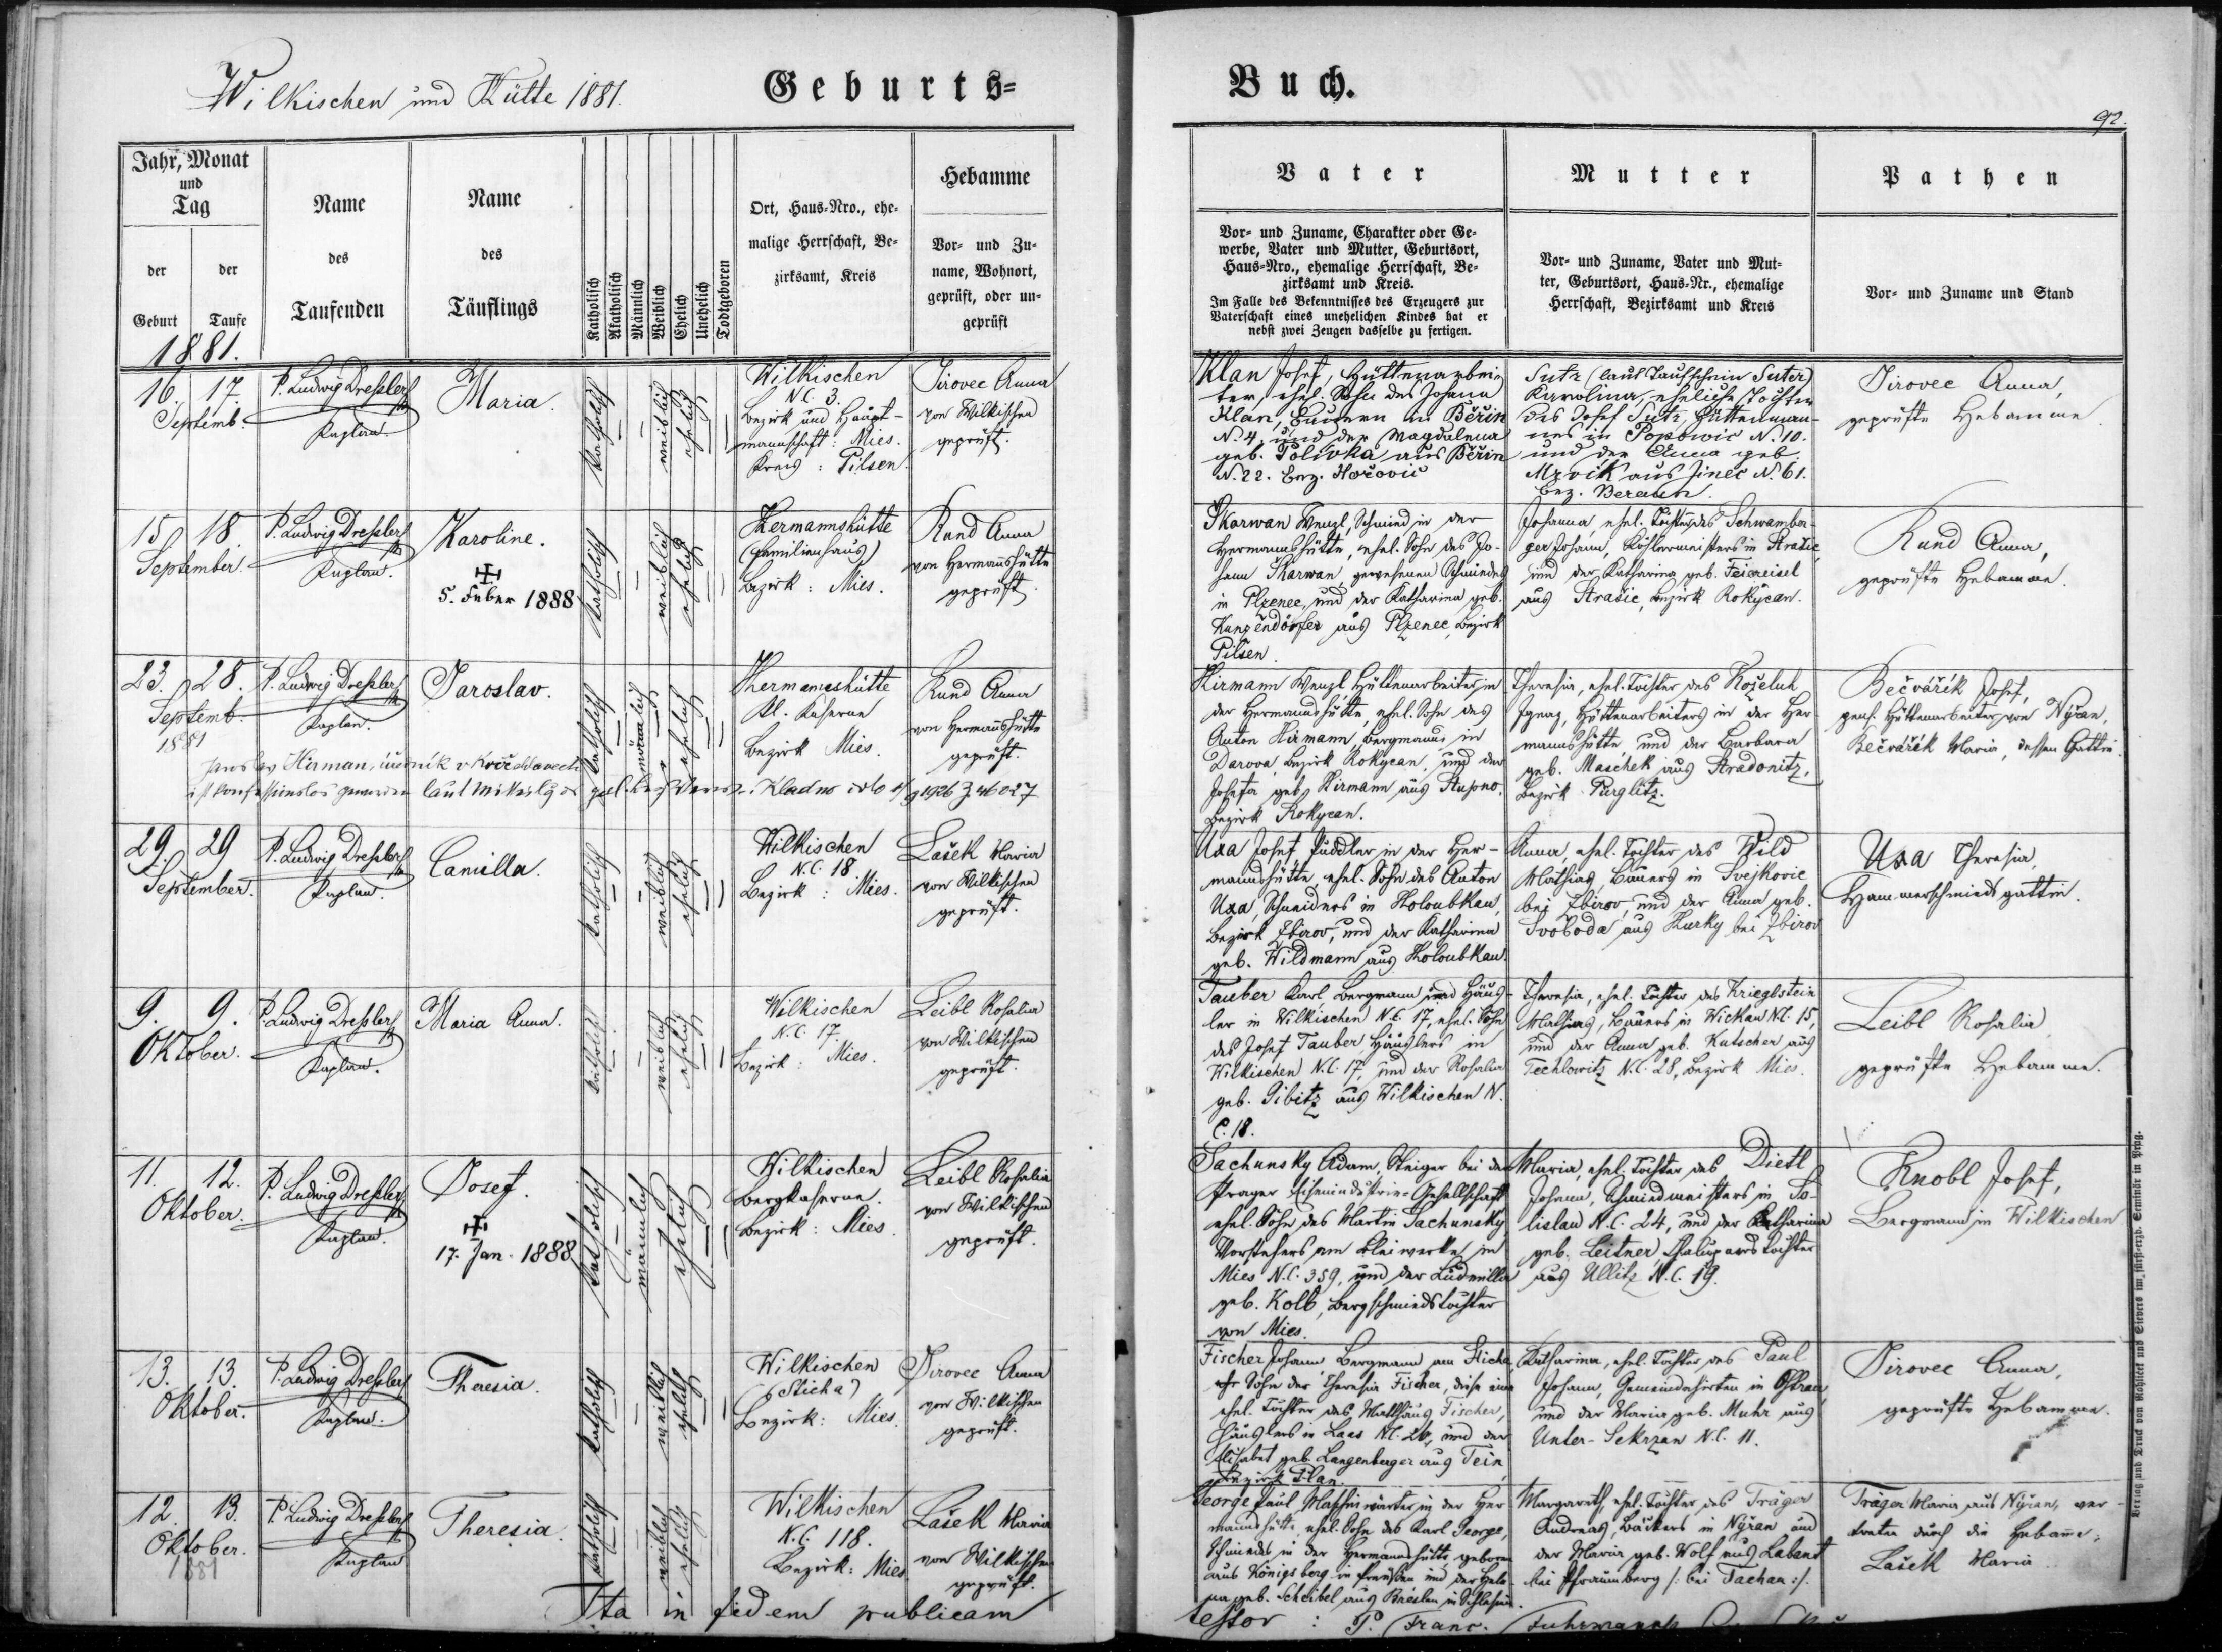 Wilkischen und Hütte 1881.
Geburts-
Buch.
92.
Jahr, Monat
und
Tag
der
Geburt
der
Taufe
Name
des
Taufenden
Name
des
Täuflings
Katholisch
Akatholisch
Männlich
Weiblich
Ehelich
Unehelich
Todtgeboren
Ort, Haus-Nro., ehe-
malige Herrschaft, Be-
zirksamt, Kreis
Hebamme
Vor- und Zu-
name, Wohnort,
geprüft, oder un-
geprüft
Vater
Vor- und Zuname, Charakter oder Ge-
werbe, Vater und Mutter, Geburtsort,
Haus-Nro., ehemalige Herrschaft, Be-
zirksamt und Kreis.
Im Falle des Bekenntnisses des Erzeugers zur
Vaterschaft eines unehelichen Kindes hat er
nebst zwei Zeugen dasselbe zu fertigen.
Mutter
Vor- und Zuname, Vater und Mut-
ter, Geburtsort, Haus-Nr., ehemalige
Herrschaft, Bezirksamt und Kreis
Pathen
Vor- und Zuname und Stand
1881.
16. 17.
Septemb.
P. Ludwig Dressler
Kaplan.
Maria.
katholisch
weiblich
ehelich
Wilkischen
N.C. 3.
Bezirk und Haupt-
mannschaft: Mies.
Kreis: Pilsen.
Jirovec Anna
von Wilkischen
geprüft.
Klan Josef, Hüttenarbei-
ter, ehel. Sohn des Johann
Klan, Bauern in Běřin
N. 4, und der Magdalena
geb. Polivka aus Běřin
N. 22. Bez. Hořovic
Sutr (laut Taufschein Suter)
Karolina, eheliche Tochter
des Josef Sutr, Hüttenman-
nes in Popowic N. 10.
und der Anna geb.
Mrvik aus Jinec N. 61.
Bez. Beraun.
Jirovec Anna,
geprüfte Hebamme.
15 18
September.
P. Ludwig Dressler
Kaplan.
Karoline.
5. Feber 1888
katholisch
weiblich
ehelich
Hermannshütte
(Familienhaus)
Bezirk: Mies.
Rund Anna
von Hermannshütte
geprüft.
Skarwan Wenzl, Schmied in der
Hermannshütte, ehel. Sohn des Jo-
hann Skarwan, gewesenen Schmiedes
in Plzenec, und der Katharina geb.
Kunzendörfer aus Plzenec, Bezirk
Pilsen.
Johanna, ehel. Tochter des Schwamber-
ger Johann, Köhlermeisters in Strašic,
und der Katharina geb. Feicreisel
aus Strašic, Bezirk Rokycan.
Rund Anna,
geprüfte Hebamme.
23. 28.
Septemb.
1881
P. Ludwig Dressler
Kaplan.
Jaroslav.
katholisch
männlich
ehelich
Hermannshütte
Kl. Kaserne
Bezirk Mies.
Rund Anna
von Hermannshütte
geprüft.
Hirman, úředník v
ist konfessionslos geworden laut Kladno 1926 Z 46027
Hirmann Wenzl, Hüttenarbeiter in
der Hermannshütte, ehel. Sohn des
Anton Hirmann, Bergmanns in
Darova, Bezirk Rokycan, und der
Josefa geb. Hirmann aus Stupno,
Bezirk Rokycan.
Theresia, ehel. Tochter des Koželuh
Ignaz, Hüttenarbeiters in der Her-
mannshütte, und der Barbara
geb. Maschek aus Stradonitz,
Bezirk Pürglitz.
Bečvářík Josef,
pens. Hüttenarbeiter von Nýřan,
Bečvářík Maria, dessen Gattin.
29. 29
September.
P. Ludwig Dressler
Kaplan.
Camilla.
katholisch
weiblich
ehelich
Wilkischen
N.C. 18.
Bezirk: Mies.
Lašek Maria
von Wilkischen
geprüft.
Uxa Josef, Puddler in der Her-
mannshütte, ehel. Sohn des Anton
Uxa, Schneiders in Holoubkau,
Bezirk Zbirov, und der Katharina
geb. Wildmann aus Holoubkau.
Anna, ehel. Tochter des Wild
Mathias, Bauers in Svejkovic
bei Zbirov, und der Anna geb.
Svoboda aus Hurky bei Zbirov
Uxa Theresia,
Hammerschmieds gattin.
9. 9.
Oktober.
P. Ludwig Dressler
Kaplan.
Maria Anna.
katholisch
weiblich
ehelich
Wilkischen
N.C. 17.
Bezirk: Mies.
Leibl Rosalia
von Wilkischen
geprüft.
Tauber Karl, Bergmann und Häus-
ler in Wilkischen N.C. 17, ehel. Sohn
des Josef Tauber Häuslers in
Wilkischen N.C. 17, und der Rosalia
geb. Pibitz aus Wilkischen N.
C. 18.
Theresia, ehel. Tochter des Krieglstein
Mathias, Bauers in Wickau N.C. 15,
und der Anna geb. Kutscher aus
Techlowitz N.C. 28, Bezirk Mies.
Leibl Rosalia
geprüfte Hebamme.
11. 12.
Oktober.
P. Ludwig Dressler
Kaplan.
Josef.
17. Jan. 1888
katholisch
männlich
ehelich
Wilkischen
Bergkaserne.
Bezirk: Mies.
Leibl Rosalia
von Wilkischen
geprüft.
Sachunsky Adam, Steiger bei der
Prager Eisenindustrie-Gesellschaft
ehel. Sohn des Martin Sachunsky
Vorstehers am Bleiwerke in
Mies N.C. 359, und der Ludmilla
geb. Kolb, Bergschmiedstochter
von Mies.
Maria, ehel. Tochter des Dietl
Johann, Schmiedmeisters in So-
lislau N.C. 24, und der Katharina
geb. Leitner Chaluparstochter
aus Ullitz N.C. 19.
Knobl Josef,
Bergmann in Wilkischen
13. 13.
Oktober.
P. Ludwig Dressler
Kaplan.
Theresia.
katholisch
weiblich
ehelich
Wilkischen
(Sticha)
Bezirk: Mies.
Jirovec Anna
von Wilkischen
geprüft.
Fischer Johann Bergmann am Sticha,
Sohn der Theresia Fischer, diese eine
ehel. Tochter des Matthäus Fischer,
Häuslers in Laas N.C. 20, und der
Elisabet geb. Langenberger aus Tein,
Bezirk Plan.
Katharina, ehel. Tochter des Paul
Johann, Gemeindehirten in Ostrau,
und der Maria geb. Muhr aus
Unter-Sekrzan N.C. 11.
Jirovec Anna,
geprüfte Hebamme.
12. 13.
Oktober.
1881
P. Ludwig Dressler
Kaplan
Theresia.
katholisch
weiblich
ehelich
Wilkischen
N.C. 118.
Bezirk: Mies
Lašek Maria
von Wilkischen
geprüft.
George Paul, Maschinwärter in der Her-
mannshütte, ehel. Sohn des Karl George,
Schmiedes in der Hermannshütte, geboren
aus Königsberg in Preußen und der Hele-
na geb. Scheibel aus Breslau in Schlesien.
Margareth, ehel. Tochter des Träger
Andreas, Bäckers in Nýřan und
der Maria geb. Wolf aus Labant
bei Pfraumberg /: bei Tachau :/.
Träger Maria aus Nýřan, ver-
treten durch die Hebamme,
Lašek Maria.
Ita in fidem publicam
testor: P. Franc. Fuhrmann
Verlag und Druck von Rohliček und Sievers im fürst-erzb. Seminär in Prag.